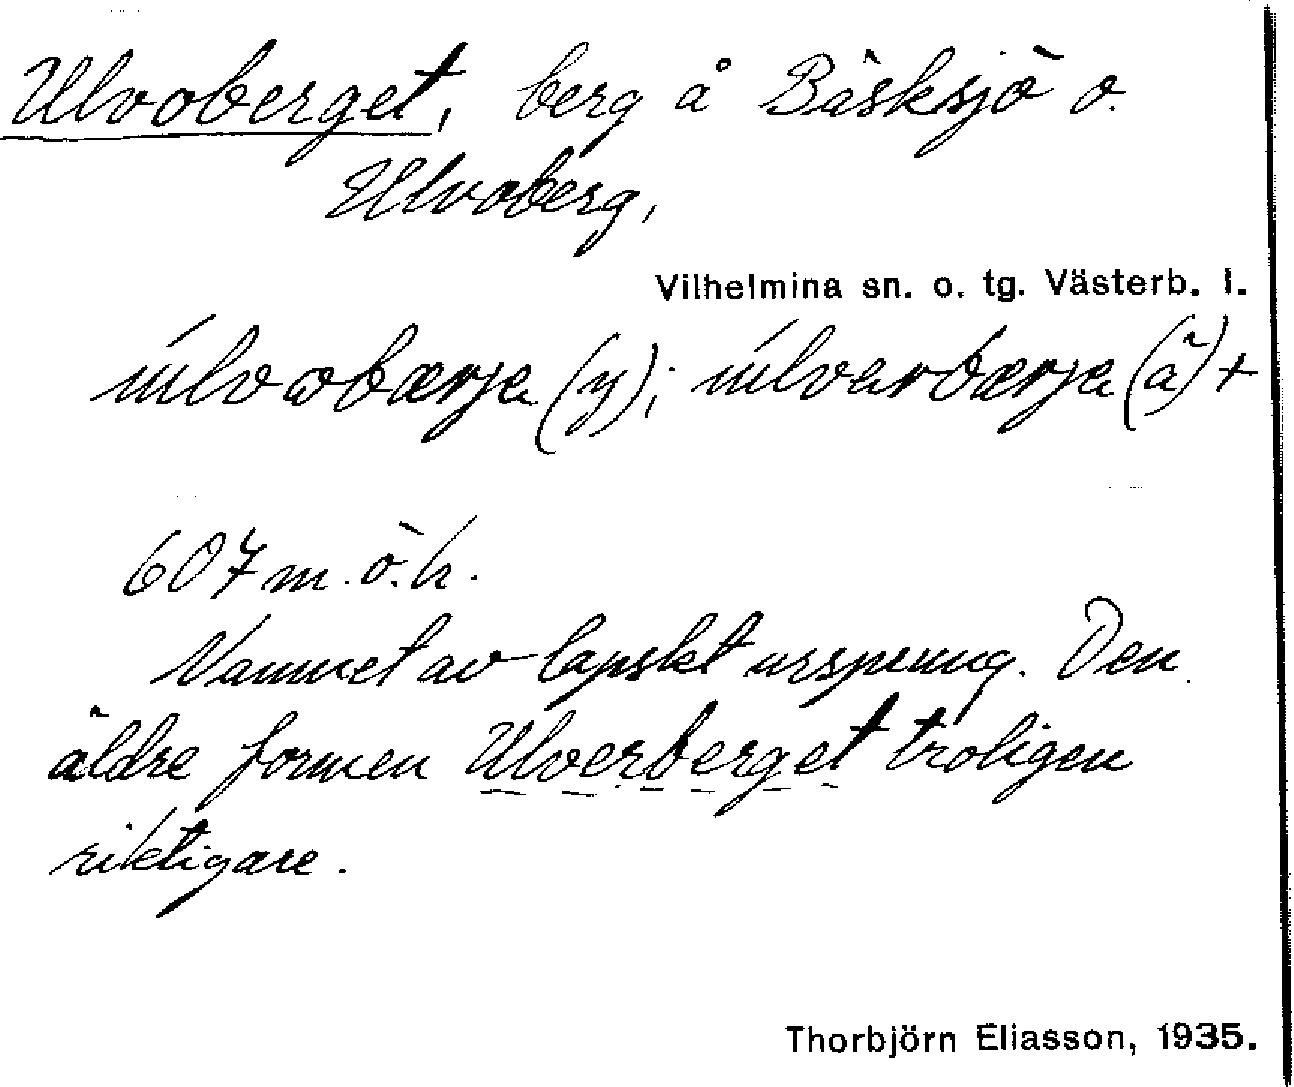 Ulvoberget, berg å Bäsksjö o.
Ulvoberg,
Vilhelmina sn. o. tg. Västerb. l.
úlvobærja (y); úlvarbærja (ä) +
607 m. ö. h.
Namnet av lapskt ursprung. Den
äldre formen Ulverberget troligen
riktigare.
Thorbjörn Eliasson, 1935.